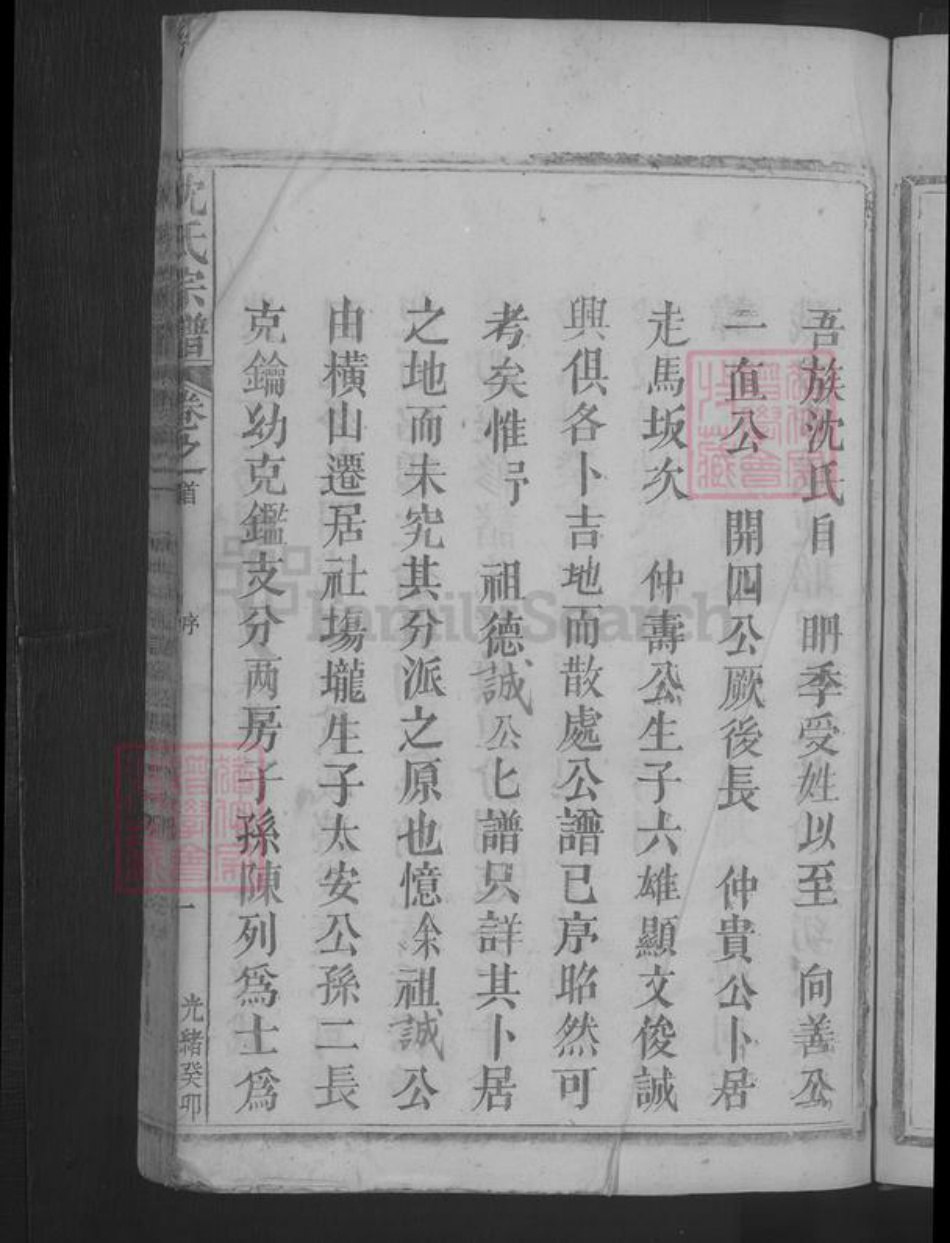 吾族沈氏自　聃季受姓以至　向善公
一直公　開四公厥後長　仲貴公卜居
走馬坂次　仲壽公生子六雄顯文俊誠
興俱各卜吉地而散處公譜已序昭然可
考矣惟予　祖德誠公七譜只詳其卜居
之地而未究其分派之原也憶余祖誠公
由橫山遷居社塲壠生子太安公孫二長
克鑰幼克鑑支分两房子孫陳列爲士爲
沈氏宗譜 卷之首 序 一 光緒癸卯
FamilySearch